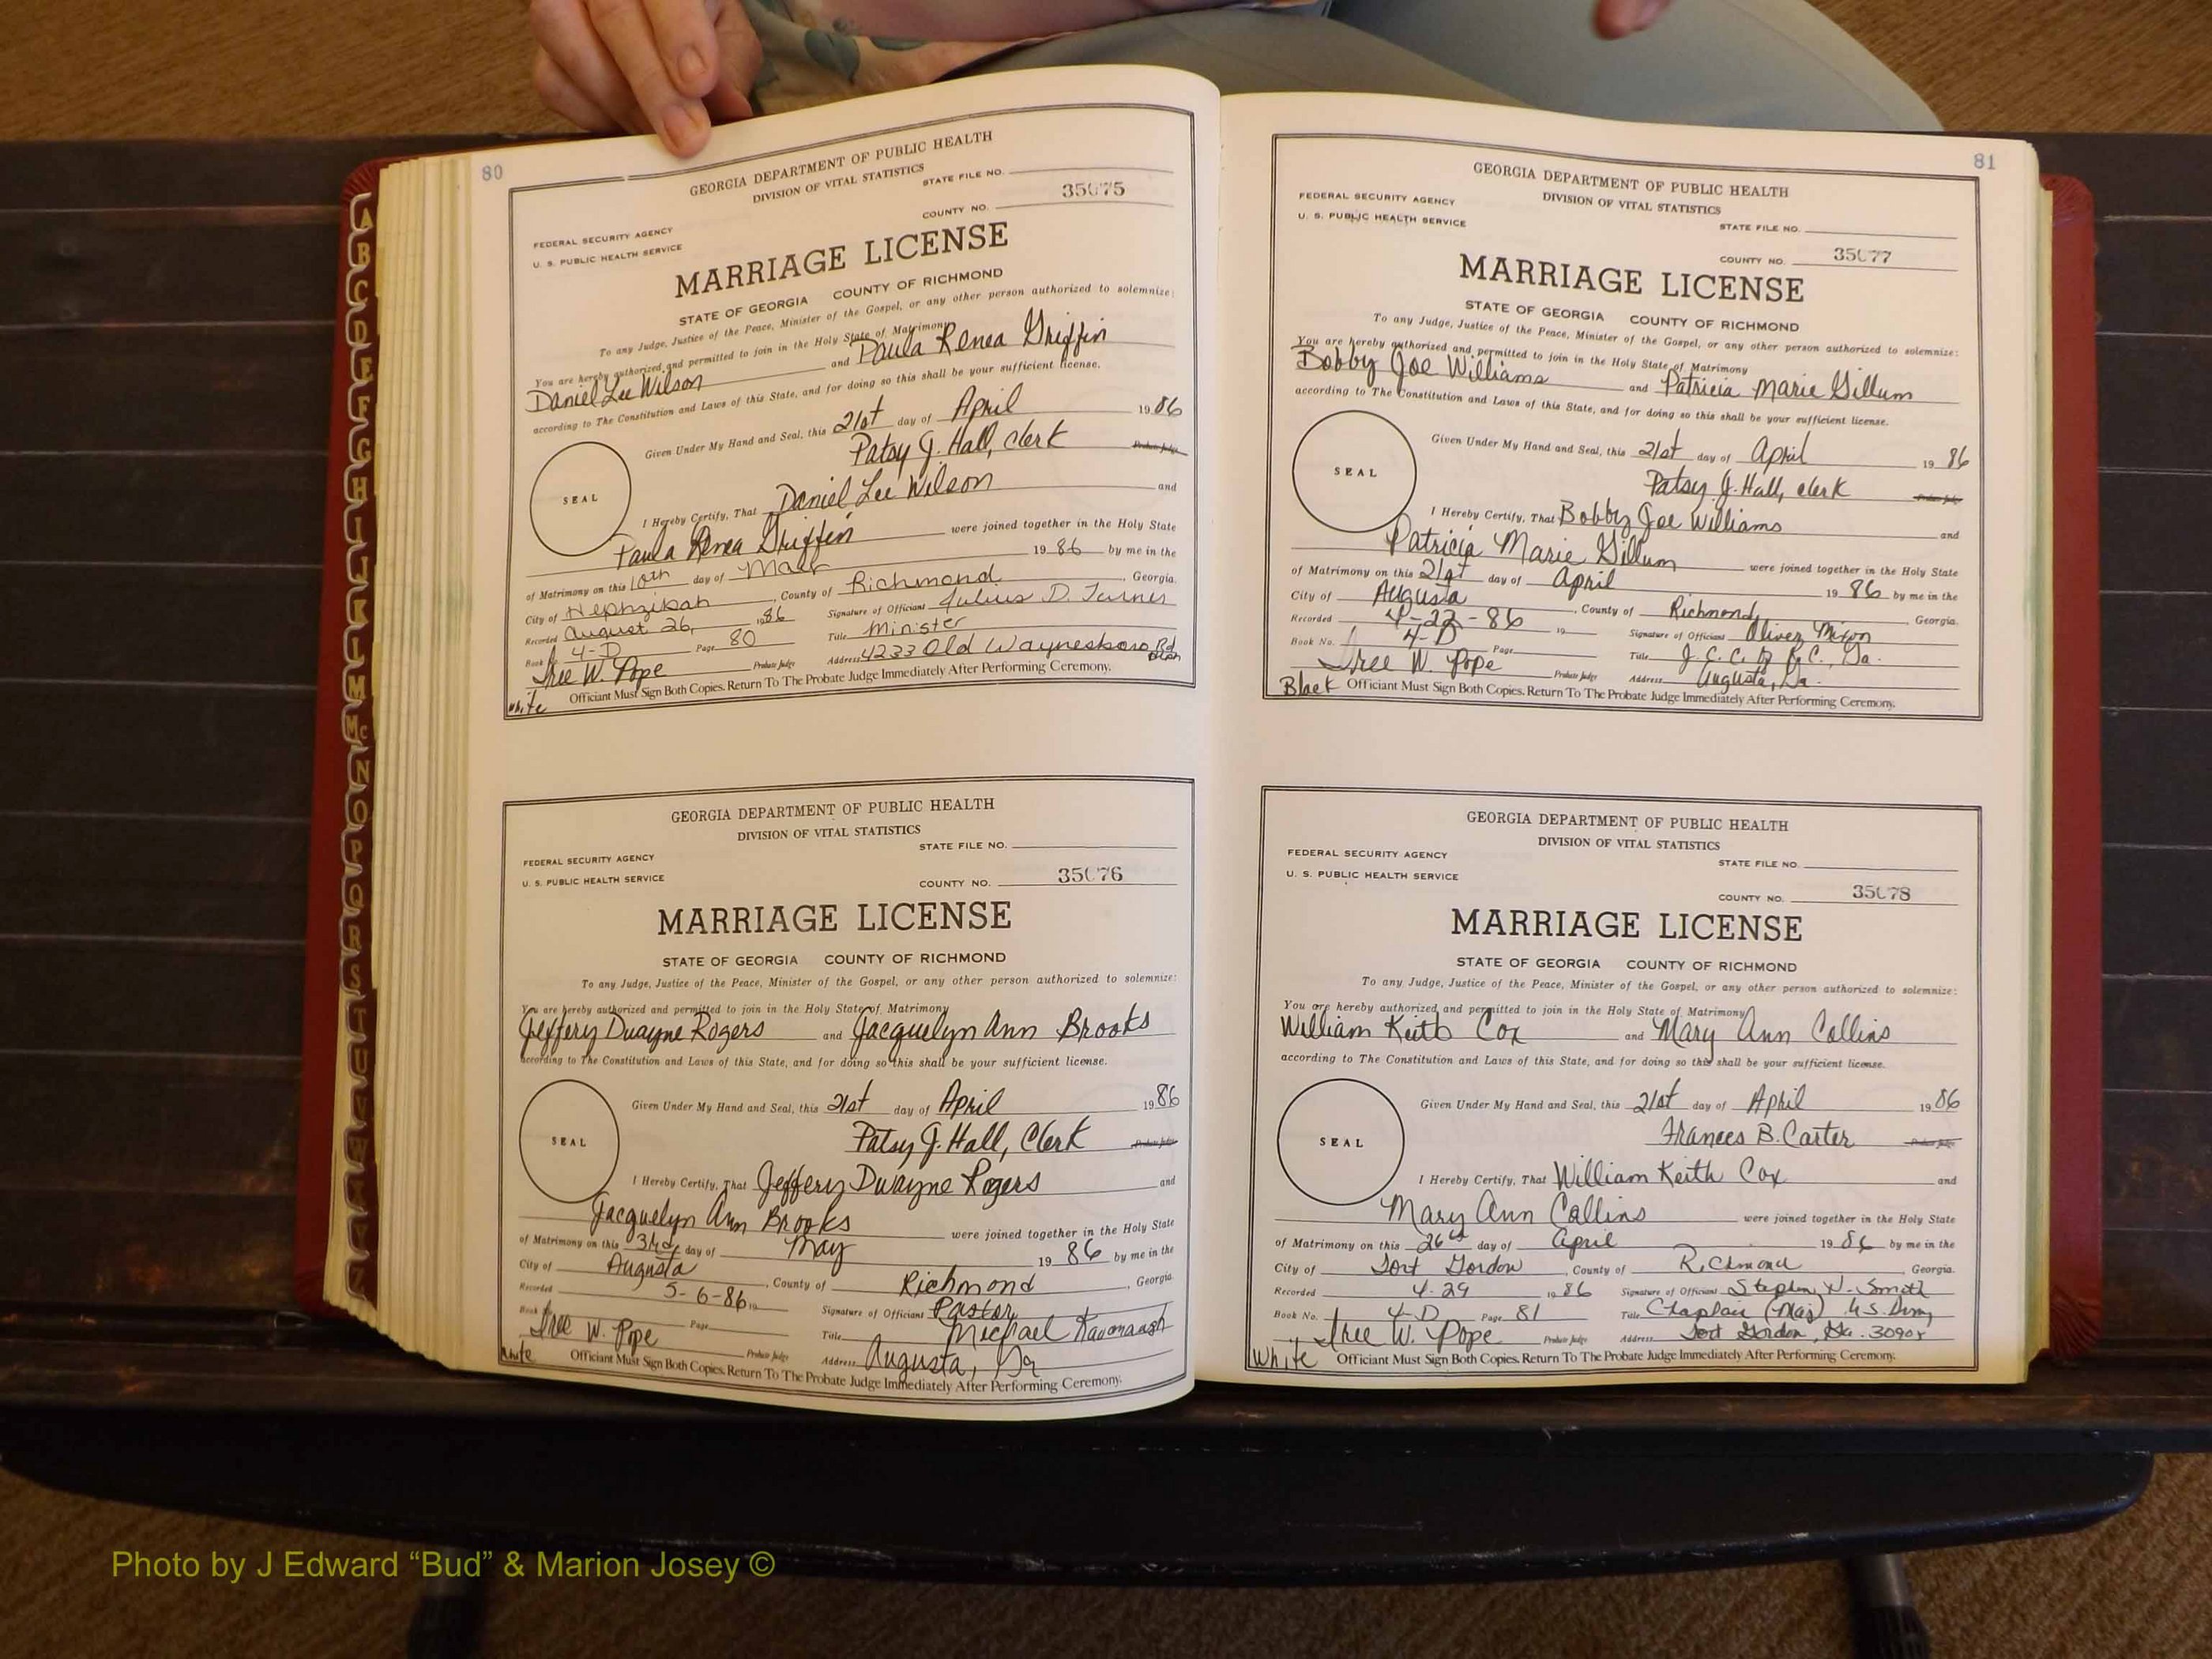 80
GEORGIA DEPARTMENT OF PUBLIC HEALTH
DIVISION OF VITAL STATISTICS
STATE FILE NO.
COUNTY NO. 35075
FEDERAL SECURITY AGENCY
U. S. PUBLIC HEALTH SERVICE
MARRIAGE LICENSE
STATE OF GEORGIA COUNTY OF RICHMOND
To any Judge, Justice of the Peace, Minister of the Gospel, or any other person authorized to solemnize:
You are hereby authorized and permitted to join in the Holy State of Matrimony
Daniel Lee Wilson and Paula Renea Griffin
according to The Constitution and Laws of this State, and for doing so this shall be your sufficient license.
Given Under My Hand and Seal, this 21st day of April 1986
Patsy J. Hall, clerk Probate Judge
SEAL
I Hereby Certify, That Daniel Lee Wilson and
Paula Renea Griffin were joined together in the Holy State
of Matrimony on this 10th day of May 1986 by me in the
City of Hephzibah, County of Richmond, Georgia.
Recorded August 26, 1986 Signature of Officiant Julius D. Turner
Book No. 4-D Page 80 Title Minister
W. Pope Probate Judge Address 4233 Old Waynesboro Rd
White Officiant Must Sign Both Copies. Return To The Probate Judge Immediately After Performing Ceremony.
GEORGIA DEPARTMENT OF PUBLIC HEALTH
DIVISION OF VITAL STATISTICS
STATE FILE NO.
FEDERAL SECURITY AGENCY
U. S. PUBLIC HEALTH SERVICE
COUNTY NO. 35076
MARRIAGE LICENSE
STATE OF GEORGIA COUNTY OF RICHMOND
To any Judge, Justice of the Peace, Minister of the Gospel, or any other person authorized to solemnize:
You are hereby authorized and permitted to join in the Holy State of Matrimony
Jeffery Dwayne Rogers and Jacquelyn Ann Brooks
according to The Constitution and Laws of this State, and for doing so this shall be your sufficient license.
Given Under My Hand and Seal, this 21st day of April 1986
Patsy J. Hall, Clerk Probate Judge
SEAL
I Hereby Certify, That Jeffery Dwayne Rogers and
Jacquelyn Ann Brooks were joined together in the Holy State
of Matrimony on this 3rd day of May 1986 by me in the
City of Augusta, County of Richmond, Georgia.
Recorded 5-6-86 19 Signature of Officiant Pastor
Book No. Page Title Michael Kavanaugh
W. Pope Probate Judge Address Augusta, Ga
White Officiant Must Sign Both Copies. Return To The Probate Judge Immediately After Performing Ceremony.
81
GEORGIA DEPARTMENT OF PUBLIC HEALTH
DIVISION OF VITAL STATISTICS
FEDERAL SECURITY AGENCY
U. S. PUBLIC HEALTH SERVICE
STATE FILE NO.
COUNTY NO. 35077
MARRIAGE LICENSE
STATE OF GEORGIA COUNTY OF RICHMOND
To any Judge, Justice of the Peace, Minister of the Gospel, or any other person authorized to solemnize:
You are hereby authorized and permitted to join in the Holy State of Matrimony
Bobby Joe Williams and Patricia Marie Gillum
according to The Constitution and Laws of this State, and for doing so this shall be your sufficient license.
Given Under My Hand and Seal, this 21st day of April 1986
Patsy J. Hall, clerk Probate Judge
SEAL
I Hereby Certify, That Bobby Joe Williams and
Patricia Marie Gillum were joined together in the Holy State
of Matrimony on this 21st day of April 1986 by me in the
City of Augusta, County of Richmond, Georgia.
Recorded 4-22-86 19 Signature of Officiant Oliver Mixon
Book No. 4-D Page Title J. C. C. Ga.
W. Pope Probate Judge Address Augusta, Ga.
Black Officiant Must Sign Both Copies. Return To The Probate Judge Immediately After Performing Ceremony.
GEORGIA DEPARTMENT OF PUBLIC HEALTH
DIVISION OF VITAL STATISTICS
FEDERAL SECURITY AGENCY
STATE FILE NO.
U. S. PUBLIC HEALTH SERVICE
COUNTY NO. 35078
MARRIAGE LICENSE
STATE OF GEORGIA COUNTY OF RICHMOND
To any Judge, Justice of the Peace, Minister of the Gospel, or any other person authorized to solemnize:
You are hereby authorized and permitted to join in the Holy State of Matrimony
William Keith Cox and Mary Ann Collins
according to The Constitution and Laws of this State, and for doing so this shall be your sufficient license.
Given Under My Hand and Seal, this 21st day of April 1986
Frances B. Carter Probate Judge
SEAL
I Hereby Certify, That William Keith Cox and
Mary Ann Collins were joined together in the Holy State
of Matrimony on this 26th day of April 1986 by me in the
City of Fort Gordon, County of Richmond, Georgia.
Recorded 4-29 1986 Signature of Officiant Stephen W. Smith
Book No. 4-D Page 81 Title Chaplain (Maj) U.S. Army
W. Pope Probate Judge Address Fort Gordon, Ga. 30905
White Officiant Must Sign Both Copies. Return To The Probate Judge Immediately After Performing Ceremony.
A
B
C
D
E
F
G
H
I
J
K
L
M
Mc
N
O
P
Q
R
S
T
U
V
W
X
Y
Z
Photo by J Edward “Bud” & Marion Josey ©